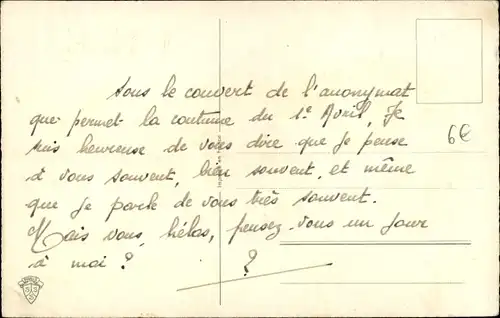 Sous le couvert de l'anonymat
que permet la coutume du 1e Avril, Je
suis heureuse de vous dire que je pense
à vous souvent, bien souvent, et même
que je parle de vous très souvent.
Mais vous, hélas, pensez-vous un jour
à moi ? ?
6€